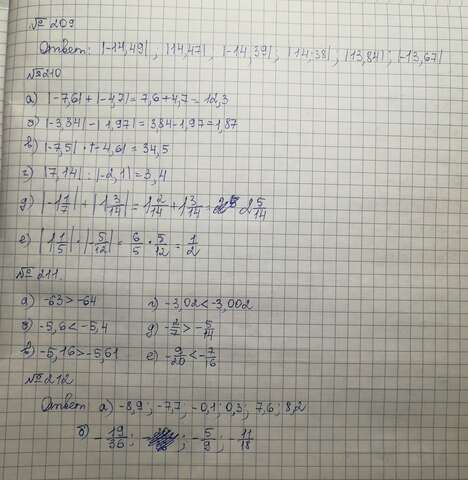 № 209
Ответ: |-14,49|, |14,47|, |-14,39|; |14,38|, |13,84|; |-13,67|
№210
а) |-7,6| + |-4,7| = 7,6 + 4,7 = 12,3
б) |-3,84| - |1,97| = 3,84 - 1,97 = 1,87
в) |-7,5| · |-4,6| = 34,5
г) |7,14| : |-2,1| = 3,4
д) |-1 1/7| + |1 3/14| = 1 2/14 + 1 3/14 = 2 5/14
е) |1 1/5| · |-5/12| = 6/5 · 5/12 = 1/2
№ 211
а) -63 > -64 г) -3,02 < -3,002
б) -5,6 < -5,4 д) -2/7 > -5/14
в) -5,16 > -5,61 е) -9/20 < -7/16
№ 212
Ответ а) -8,9; -7,7; -0,1; 0,3; 7,6; 8,2
б) -19/36; -5/9; -11/18